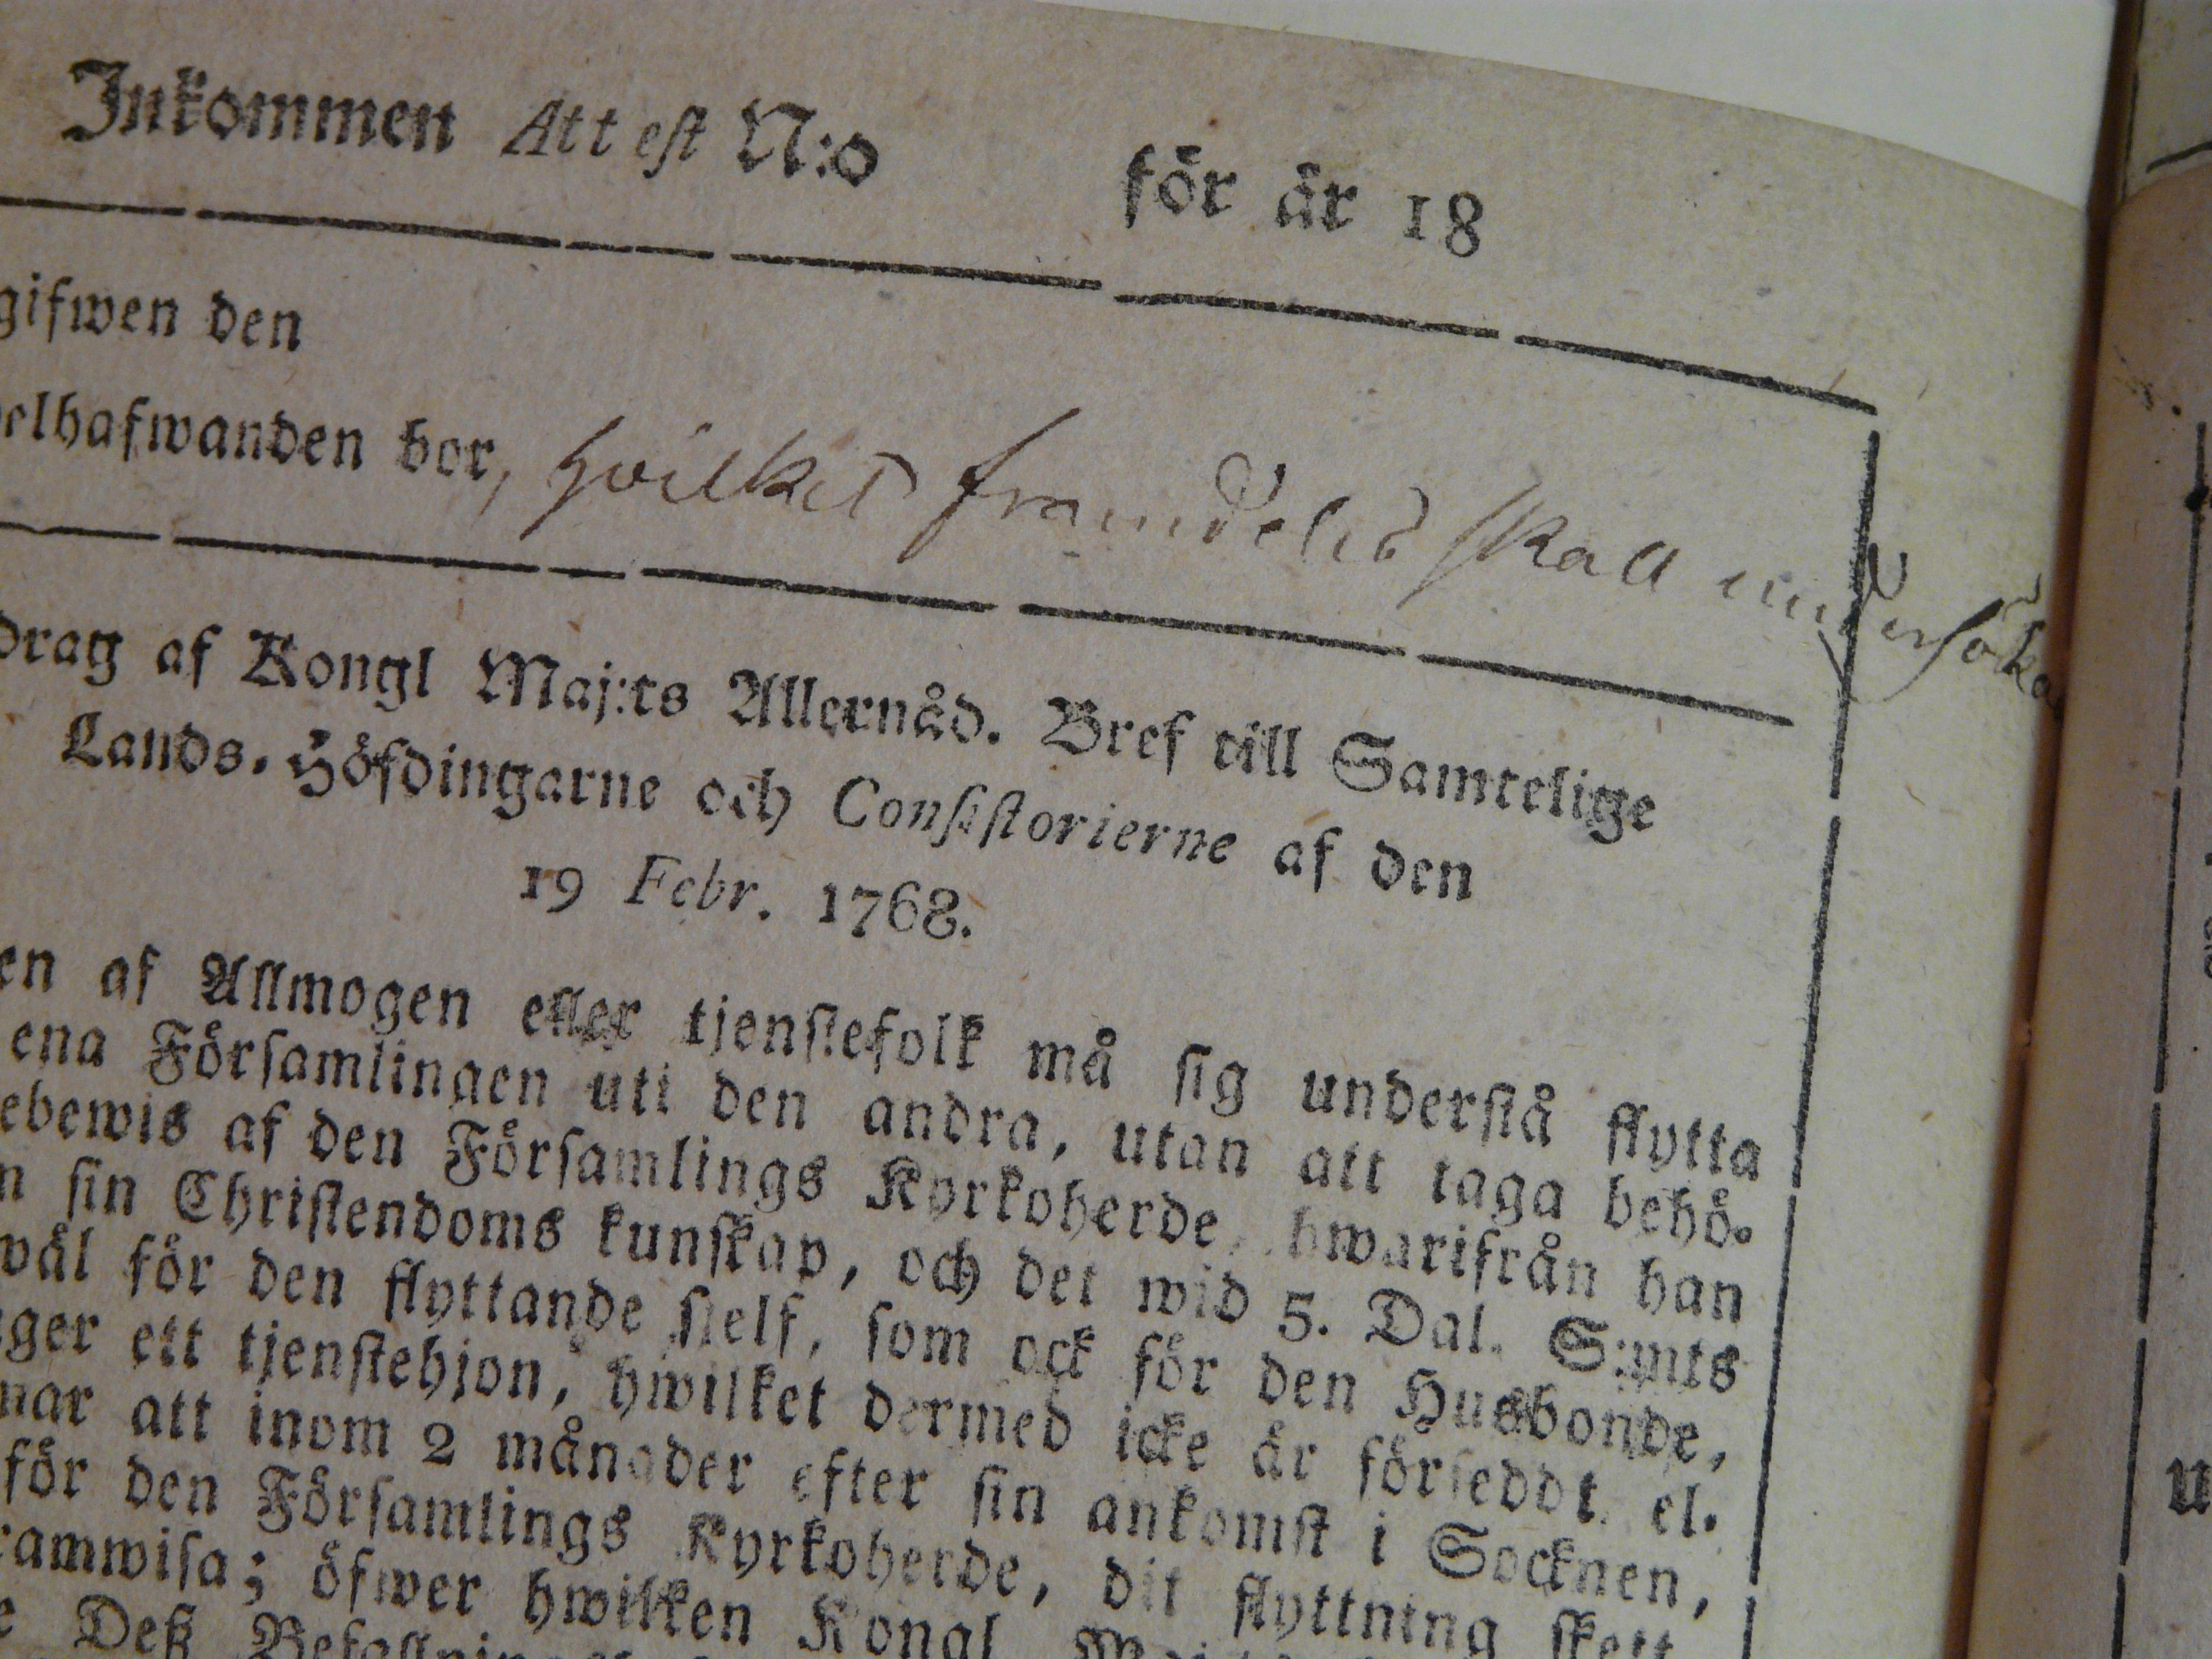 Inkommen Attest N:o för år 18
gifwen den
elhafwanden bor, hvilket framdeles skall undersökas
drag af Kongl Maj:ts Allernåd. Bref till Samtelige
Lands-Höfdingarne och Consistorierne af den
19 Febr. 1768.
en af Allmogen eller tjenstefolk må sig understå flytta
ena Församlingen uti den andra, utan att taga behö-
ebewis af den Församlings Kyrkoherde, hwarifrån han
n sin Christendoms kunskap, och det wid 5. Dal. S:mts
wäl för den flyttande sielf, som ock för den Husbonde,
ger ett tjenstehjon, hwilket dermed icke är förseddt el-
nar att inom 2 månader efter sin ankomst i Socknen,
för den Församlings Kyrkoherde, dit flyttning skett
ramwisa; öfwer hwilken Kongl
e Deß Befallnings
u